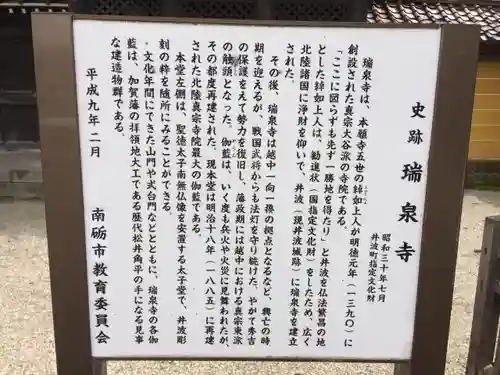 史跡 瑞泉寺
昭和三十年七月
井波町指定文化財
瑞泉寺は、本願寺五世の綽如上人が明徳元年(一三九〇)に
創設された真宗大谷派の寺院である。
「ここに図らずも先ず一勝地を得たり」と井波を仏法繁昌の地
とした綽如上人は、勧進状(国指定文化財)をしたため、広く
北陸諸国に浄財を仰いで、井波(現井波城跡)に瑞泉寺を建立
された。
その後、瑞泉寺は越中一向一揆の拠点となるなど、興亡の時
期を迎えるが、戦国武将からも法灯を守り続けた。やがて秀吉
の保護をえて勢力を復旧し、藩政期には越中における真宗東派
の触頭となった。伽藍は、いく度も兵火や火災に見舞われたが、
その都度再建された。現本堂は明治十八年(一八八五)に再建
された北陸真宗寺院最大の伽藍である。
本堂左側は、聖徳太子南無仏像を安置する太子堂で、井波彫
刻の粋を随所にみることができる。
文化年間にできた山門や式台門などとともに、瑞泉寺の各伽
藍は、加賀藩の拝領地大工である歴代松井角平の手になる見事
な建造物群である。
平成九年二月
南砺市教育委員会